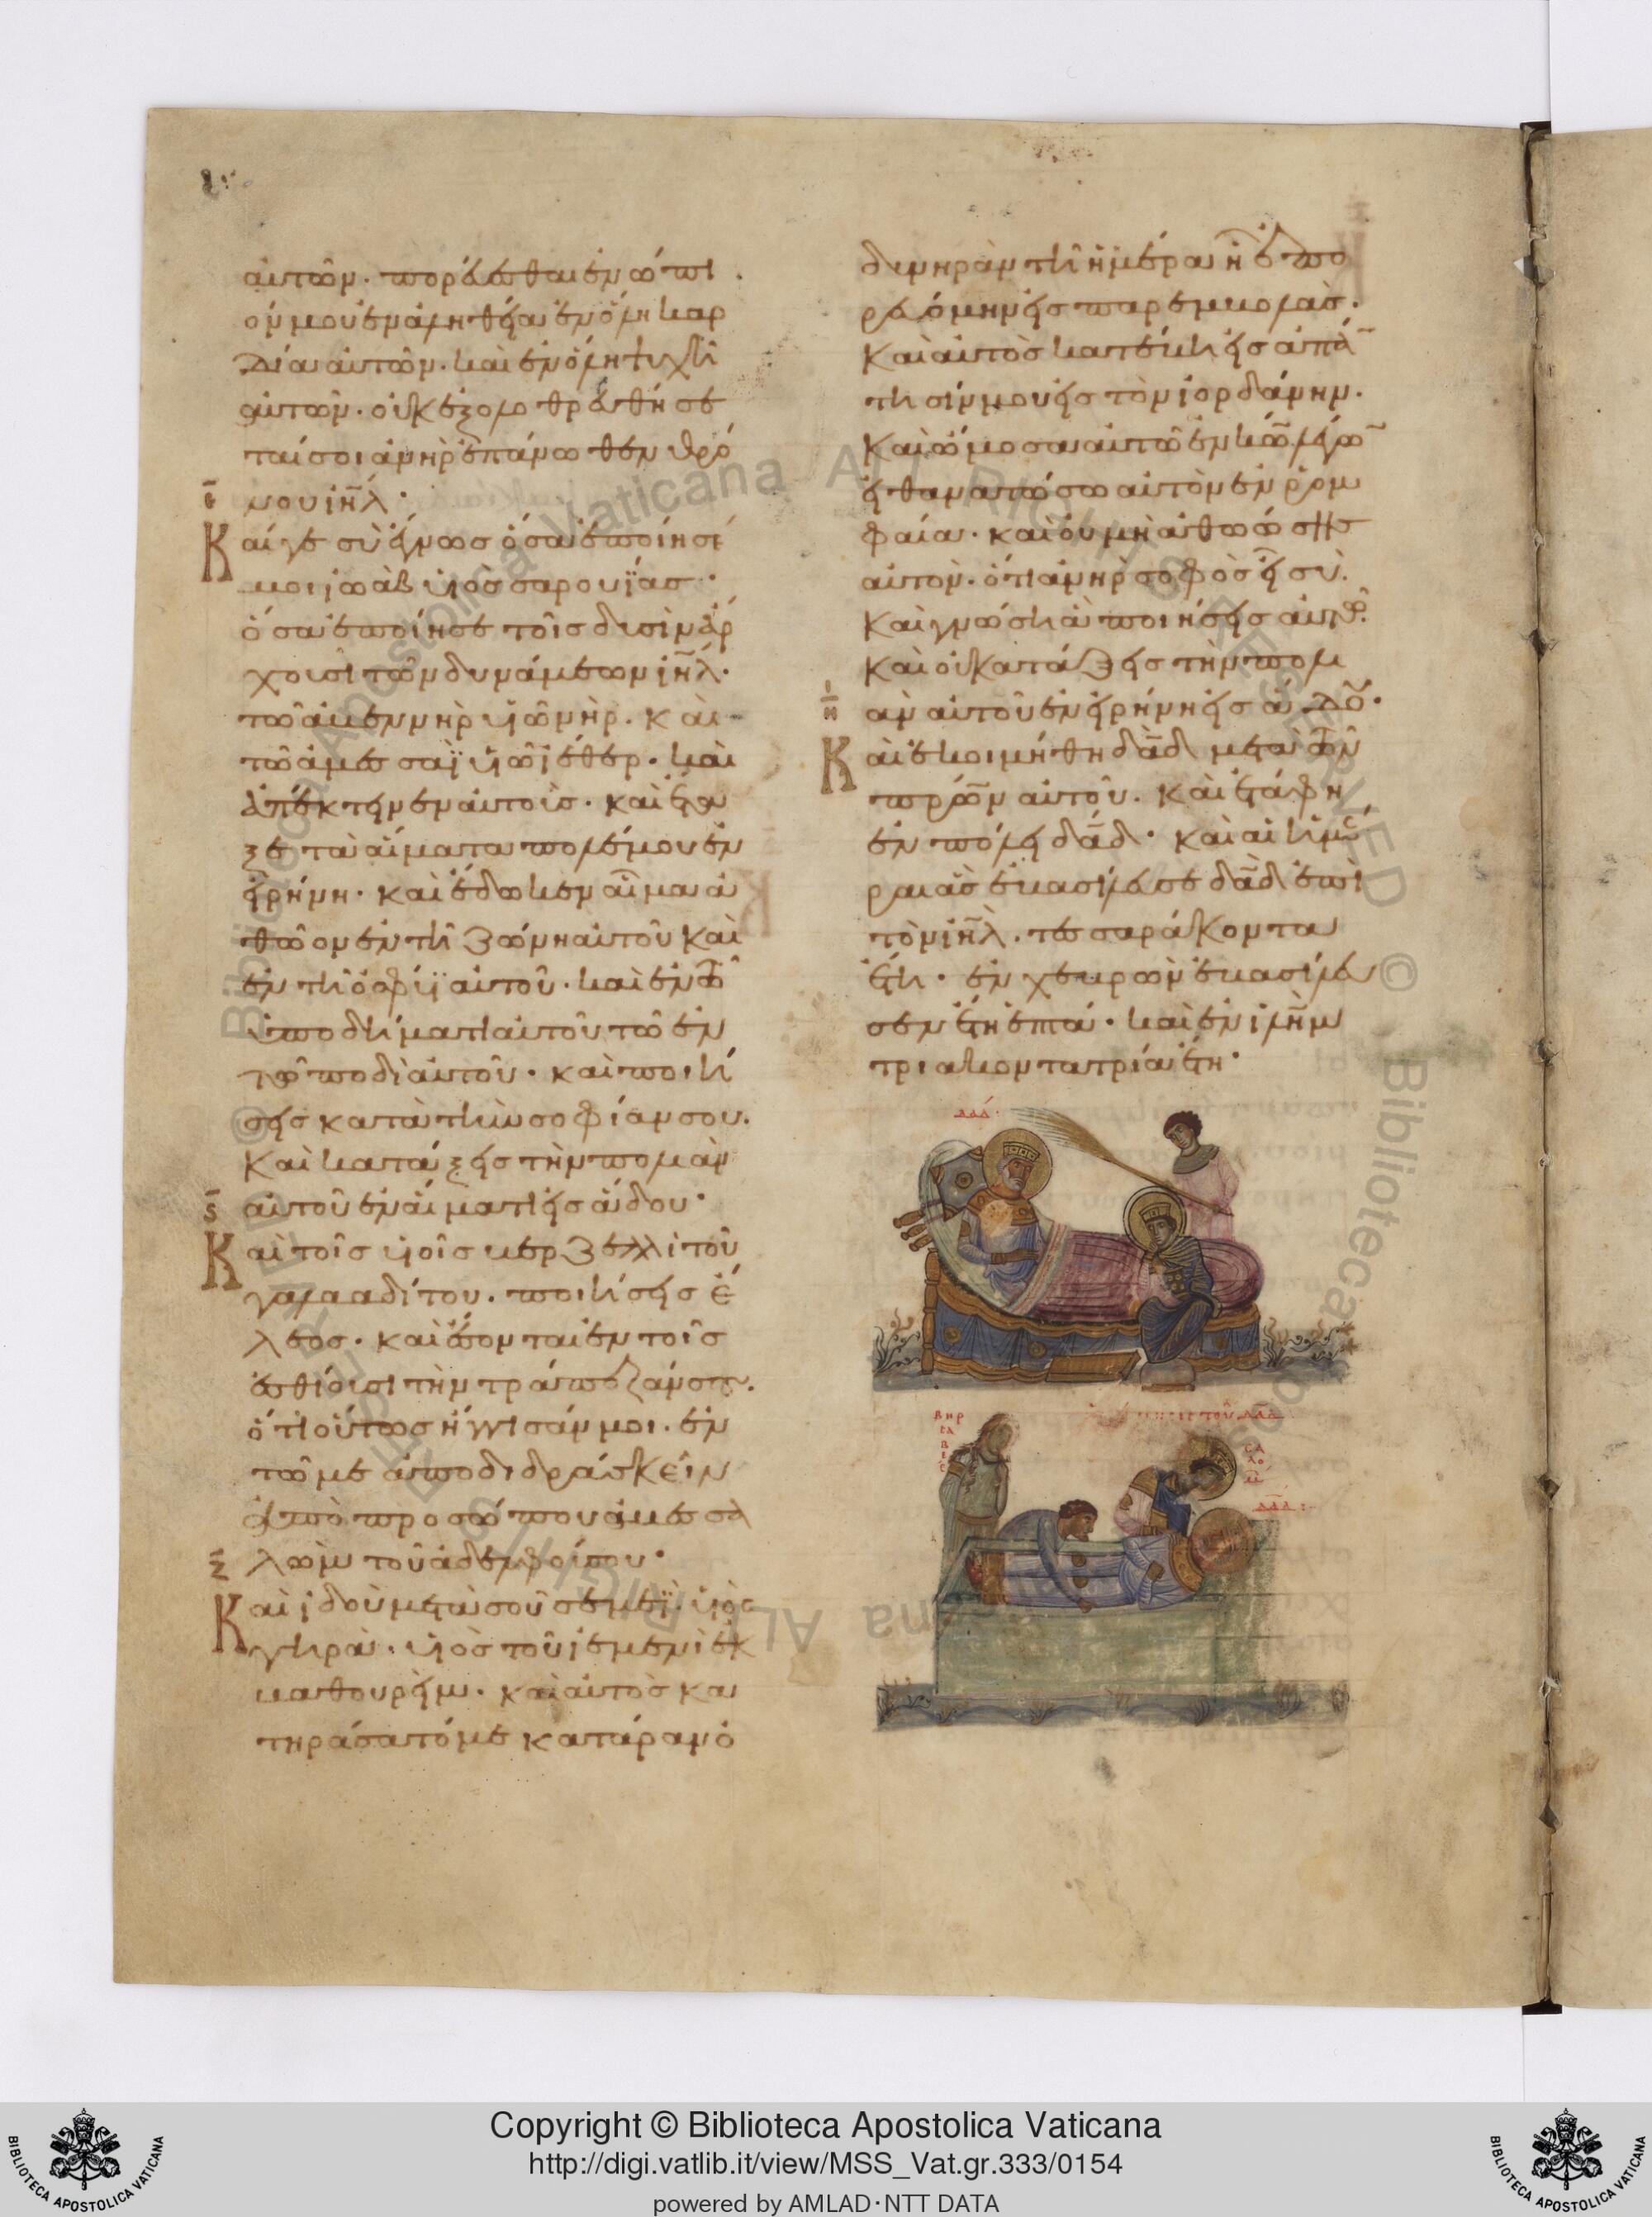 αὐτῶν. πορεύεσθαι ἐνώπι
όν μου ἐν ἀληθεία ἐν ὅλη καρ
δία αὐτῶν. καὶ ἐν ὅλη ψυχῆ
αὐτῶν. οὐκ ἐξολοθρευθήσε
ταί σοι ἀνὴρ ἐπάνωθεν θρό
νου ιη̅λ.
ε̅
Καίγε σὺ ἔγνως ὅσα ἐποίησέ
μοι ἰωὰβ υἱὸς σαρουΐας.
ὅσα ἐποίησε τοῖς δυσὶν ἄρ
χουσι τῶν δυνάμεων ιη̅λ.
τῶ ἀβεννὴρ υἱῶ νὴρ. καὶ
τῶ ἀμεσαῒ υἱῶ ἰέθερ. καὶ
ἀπέκτεινεν αὐτούς. καὶ ἔτα
ξε τὰ αἵματα πολέμου ἐν
εἰρήνη. καὶ ἔδωκεν αἷμα ἀ
θῶον ἐν τῆ ζώνη αὐτοῦ καὶ
ἐν τῆ ὀσφύϊ αὐτοῦ. καὶ ἐν τῶ
ὑποδήματι αὐτοῦ τῶ ἐν
τῶ ποδὶ αὐτοῦ. καὶ ποιή
σεις κατὰ τὴν σοφίαν σου.
Καὶ κατάξεις τὴν πολιὰν
αὐτοῦ ἐν αἵματι εἰς ἅδου.
ς̅
Καὶ τοῖς υἱοῖς βερζελλὶ τοῦ
γαλααδίτου. ποιήσεις ἔ
λεος. καὶ ἔσονται ἐν τοῖς
ἐσθίουσι τὴν τράπεζάν σου.
ὅτι οὕτως ἤγγισάν μοι. ἐν
τῶ με ἀποδιδράσκειν
ἀπὸ προσώπου ἀβεσα
λωὼμ τοῦ ἀδελφοῦ σου.
ζ̅
Καὶ ἰδοὺ μετὰ σοῦ σεμεῒ. υἱὸς
γηρὰ. υἱὸς τοῦ ἰεμενὶ ἐκ
βαθουρὴμ. καὶ αὐτὸς κα
τηράσατό με κατάραν ὀ
δυνηρὰν τῆ ἡμέρα ἧ ἐπο
ρευόμην εἰς παρεμβολάς.
Καὶ αὐτὸς κατέβη εἰς ἀπά̅
τησίν μου εἰς τὸν ἰορδάνην.
Καὶ ὤμοσα αὐτῶ ἐν κ̅ω̅ λέγω̅
εἰ θανατώσω αὐτὸν ἐν ῥομ
φαία. καὶ οὐ μὴ ἀθωώσης
αὐτόν. ὅτι ἀνὴρ σοφὸς εἶ σύ.
Καὶ γνώση ἃ ποιήσεις αὐτῶ.
Καὶ οὐ κατάξεις τὴν πολι
ὰν αὐτοῦ ἐν εἰρήνη εἰς ἅδου.
η̅
Καὶ ἐκοιμήθη δα̅δ μετὰ τῶν
π̅ρ̅ω̅ν αὐτοῦ. καὶ ἐτάφη
ἐν πόλει δα̅δ. καὶ αἱ ἡμέ
ραι ἃς ἐβασίλευσε δα̅δ ἐπὶ
τὸν ιη̅λ. τεσσαράκοντα
ἔτη. ἐν χεβρὼν ἐβασίλευ
σεν ἔτη ἑπτά. καὶ ἐν ιλη̅μ
τριακονταπρία ἔτη.
δαδ.
ΒΗΡ
ΣΑ
ΒΕ
τοῦ δα̅δ
ΣΑ
ΛΟ
δα̅δ:
© Biblioteca Apostolica Vaticana ALL RIGHTS RESERVED © Biblioteca Apostolica Vaticana ALL RIGHTS RESERVED
Copyright © Biblioteca Apostolica Vaticana
http://digi.vatlib.it/view/MSS_Vat.gr.333/0154
powered by AMLAD·NTT DATA
BIBLIOTECA APOSTOLICA VATICANA
BIBLIOTECA APOSTOLICA VATICANA